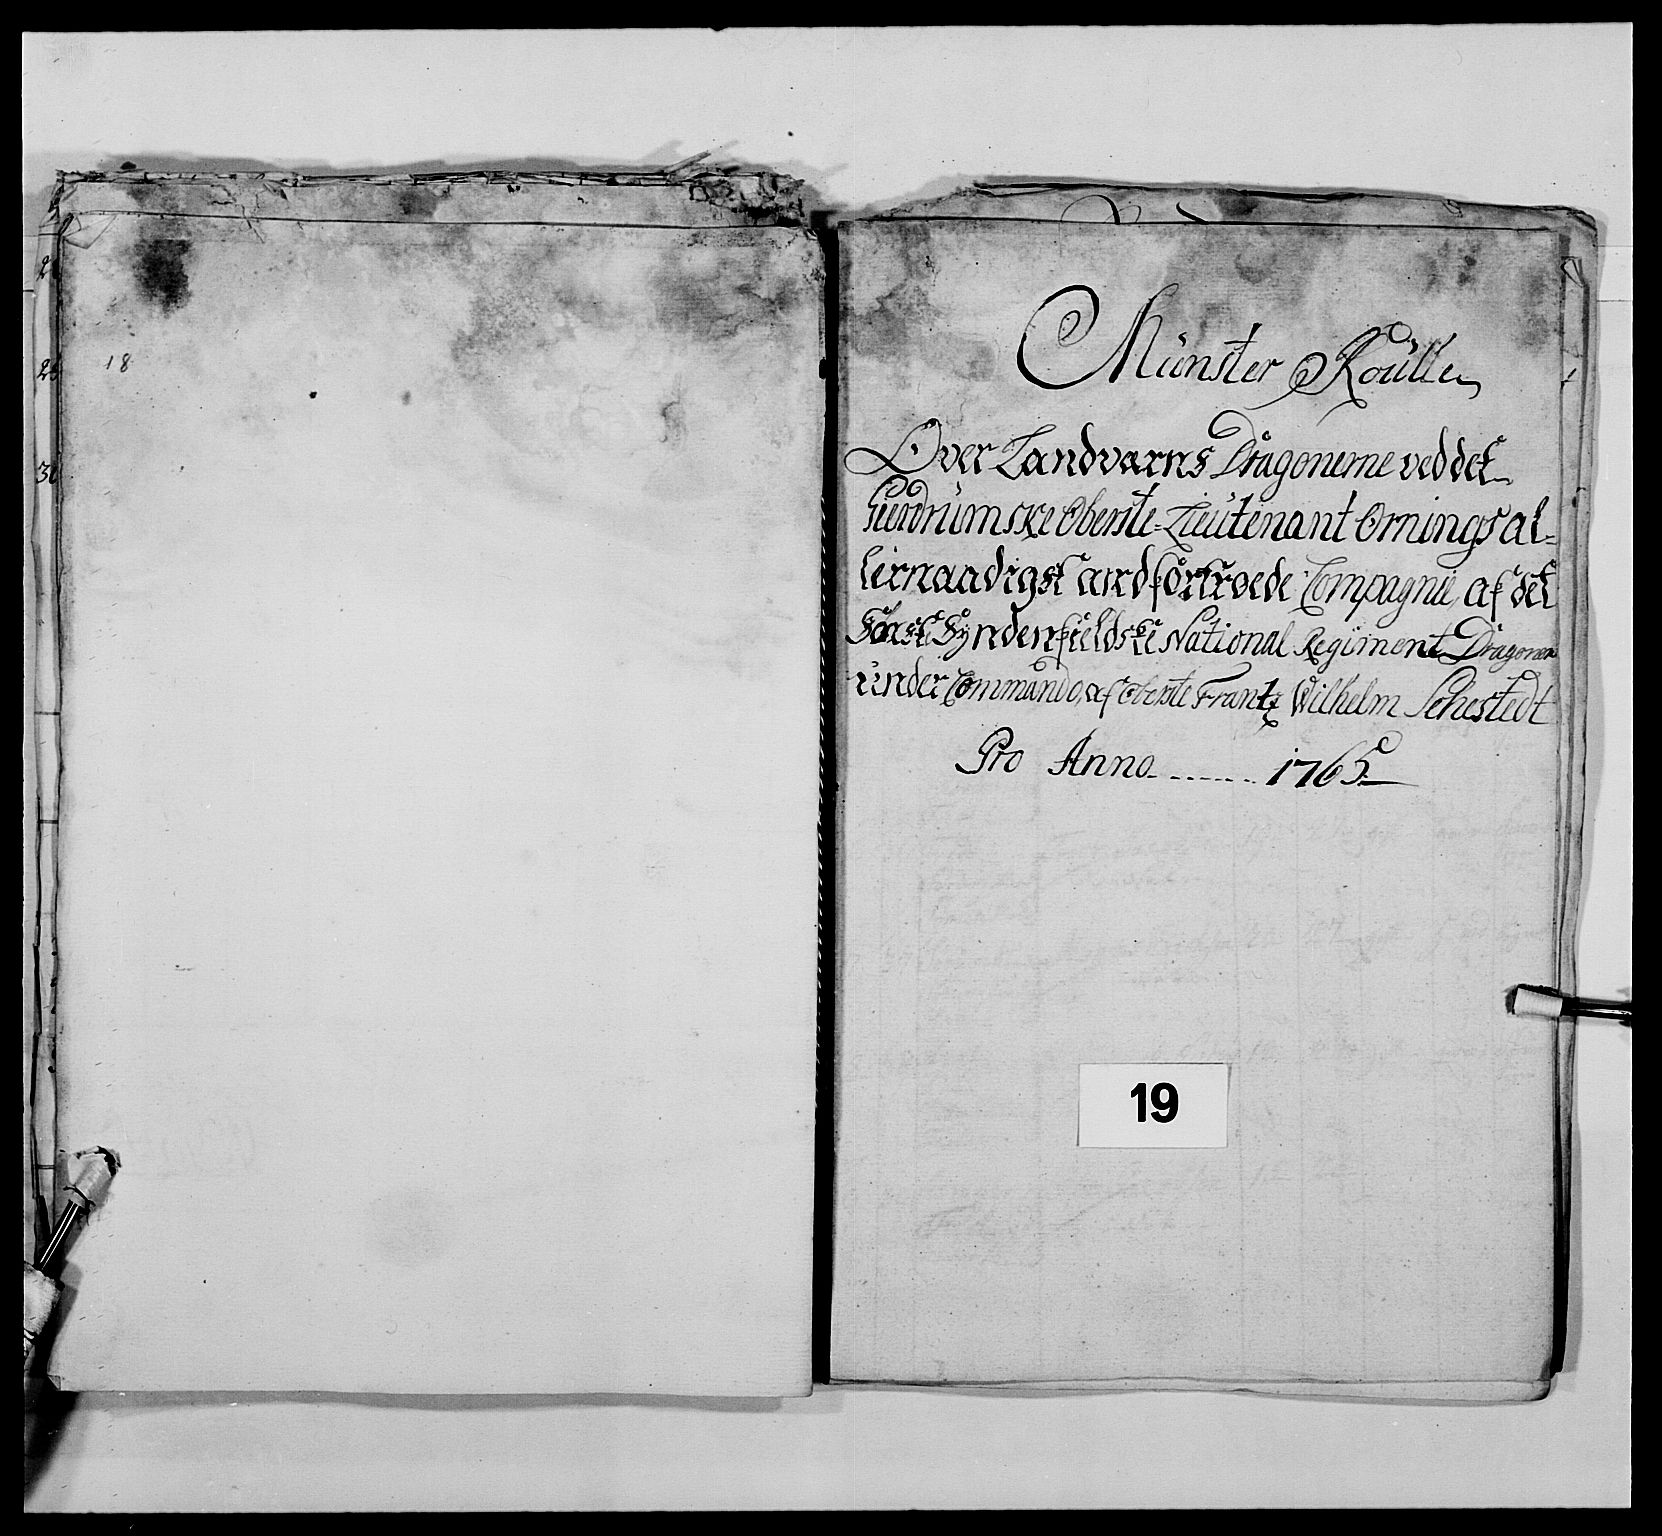 2
25
30
18
Münster Roülle
Over Landværns Dragonerne ved det
Gierdrumske Oberste-Lieutenant Ornings al-
lernaadigst andfortroede Compagnie, af det
Første Syndenfieldske National Regiment Dragoner
ünder Commando, af Oberste Frantz Wilhelm Sehestedt
Pro Anno ....... 1765
19